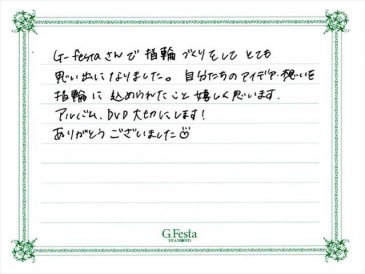 G-festaさんで指輪づくりをして とても
思い出になりました。自分たちのアイデア、想いを
指輪に込められたこと嬉しく思います.
アルバム、DVD 大切にします!
ありがとうございました☺
G.Festa
DIAMOND